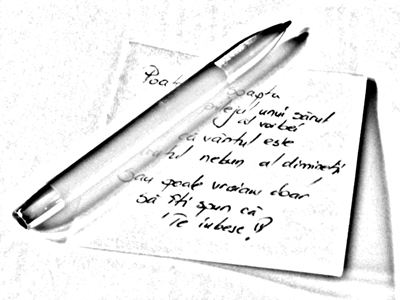 Poa șoapta
unui sărut
al vorbei
că vântul este
nebun al dimineții
Sau poate vroiam doar
să îți spun că
Te iubesc!?